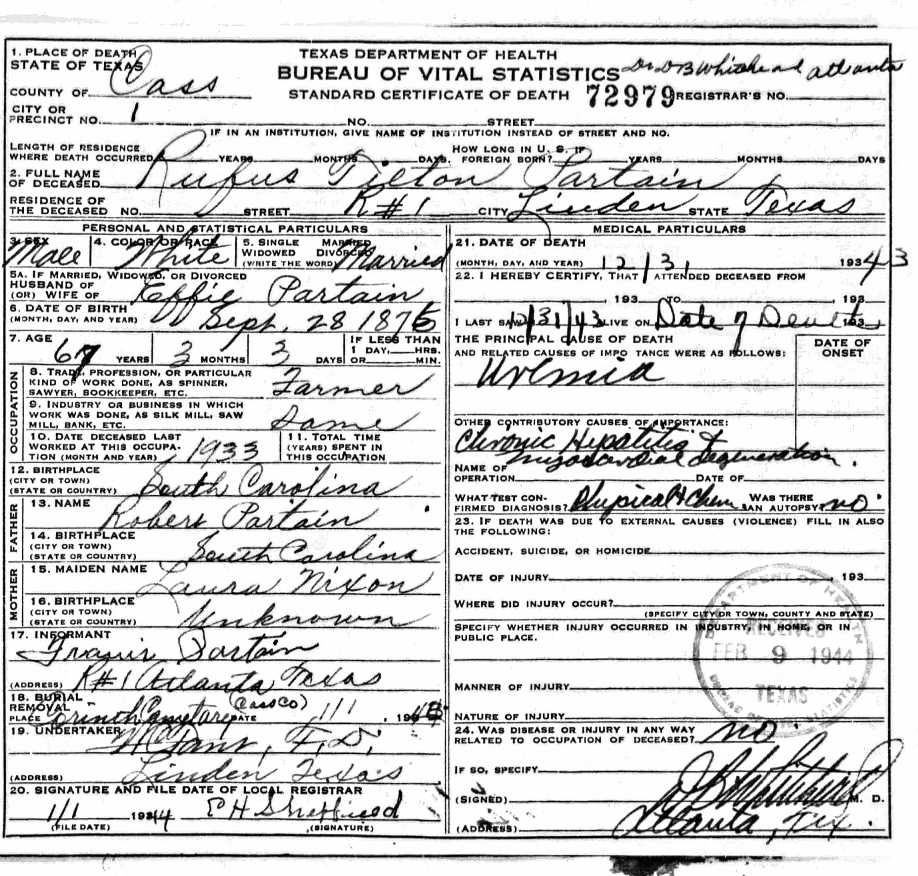 TEXAS DEPARTMENT OF HEALTH
BUREAU OF VITAL STATISTICS
STANDARD CERTIFICATE OF DEATH 72979 REGISTRAR'S NO.
Atlanta
1. PLACE OF DEATH
STATE OF TEXAS
COUNTY OF Cass
CITY OR
PRECINCT NO. 1 NO. STREET
IF IN AN INSTITUTION, GIVE NAME OF INSTITUTION INSTEAD OF STREET AND NO.
LENGTH OF RESIDENCE
WHERE DEATH OCCURRED YEARS MONTHS DAYS. HOW LONG IN U. S. IF FOREIGN BORN? YEARS MONTHS DAYS
2. FULL NAME
OF DECEASED Rufus Tilton Partain
RESIDENCE OF
THE DECEASED NO. STREET R#1 CITY Linden STATE Texas
PERSONAL AND STATISTICAL PARTICULARS
3. SEX Male 4. COLOR OR RACE White 5. SINGLE MARRIED WIDOWED DIVORCED (WRITE THE WORD) Married
5A. IF MARRIED, WIDOWED, OR DIVORCED
HUSBAND OF
(OR) WIFE OF Effie Partain
6. DATE OF BIRTH
(MONTH, DAY, AND YEAR) Sept. 28 1876
7. AGE 67 YEARS 3 MONTHS 3 DAYS IF LESS THAN 1 DAY, HRS. OR MIN.
OCCUPATION
8. TRADE, PROFESSION, OR PARTICULAR
KIND OF WORK DONE, AS SPINNER,
SAWYER, BOOKKEEPER, ETC. Farmer
9. INDUSTRY OR BUSINESS IN WHICH
WORK WAS DONE, AS SILK MILL, SAW
MILL, BANK, ETC. Same
10. DATE DECEASED LAST
WORKED AT THIS OCCUPA-
TION (MONTH AND YEAR) 1933
11. TOTAL TIME
(YEARS) SPENT IN
THIS OCCUPATION
12. BIRTHPLACE
(CITY OR TOWN)
(STATE OR COUNTRY) South Carolina
FATHER
13. NAME Robert Partain
14. BIRTHPLACE
(CITY OR TOWN)
(STATE OR COUNTRY) South Carolina
MOTHER
15. MAIDEN NAME Laura Nixon
16. BIRTHPLACE
(CITY OR TOWN)
(STATE OR COUNTRY) Unknown
17. INFORMANT
Frazier Partain
(ADDRESS) R#1 Atlanta Texas
18. BURIAL
REMOVAL
PLACE (Cass Co) DATE 1/1, 194
19. UNDERTAKER
(ADDRESS) Linden Texas
20. SIGNATURE AND FILE DATE OF LOCAL REGISTRAR
1/1 1944 E H Sheffield
(FILE DATE) (SIGNATURE)
MEDICAL PARTICULARS
21. DATE OF DEATH
(MONTH, DAY, AND YEAR) 12/31, 19343
22. I HEREBY CERTIFY, THAT I ATTENDED DECEASED FROM
, 193 TO , 193
I LAST SAW 12/31/43 ALIVE ON Date of Death 193
THE PRINCIPAL CAUSE OF DEATH
AND RELATED CAUSES OF IMPO TANCE WERE AS FOLLOWS:
DATE OF
ONSET
Uremia
OTHER CONTRIBUTORY CAUSES OF IMPORTANCE:
Chronic Hepatitis &
myocardial degeneration.
NAME OF
OPERATION DATE OF
WHAT TEST CON-
FIRMED DIAGNOSIS? Physical & Chem. WAS THERE AN AUTOPSY? no
23. IF DEATH WAS DUE TO EXTERNAL CAUSES (VIOLENCE) FILL IN ALSO
THE FOLLOWING:
ACCIDENT, SUICIDE, OR HOMICIDE
DATE OF INJURY , 193
WHERE DID INJURY OCCUR?
(SPECIFY CITY OR TOWN, COUNTY AND STATE)
SPECIFY WHETHER INJURY OCCURRED IN INDUSTRY, IN HOME, OR IN
PUBLIC PLACE.
DEPARTMENT OF HEALTH
RECEIVED
FEB 9 1944
TEXAS
BUREAU OF VITAL STATISTICS
MANNER OF INJURY
NATURE OF INJURY
24. WAS DISEASE OR INJURY IN ANY WAY
RELATED TO OCCUPATION OF DECEASED? no
IF SO, SPECIFY
(SIGNED) M. D.
(ADDRESS) Atlanta, Tex.